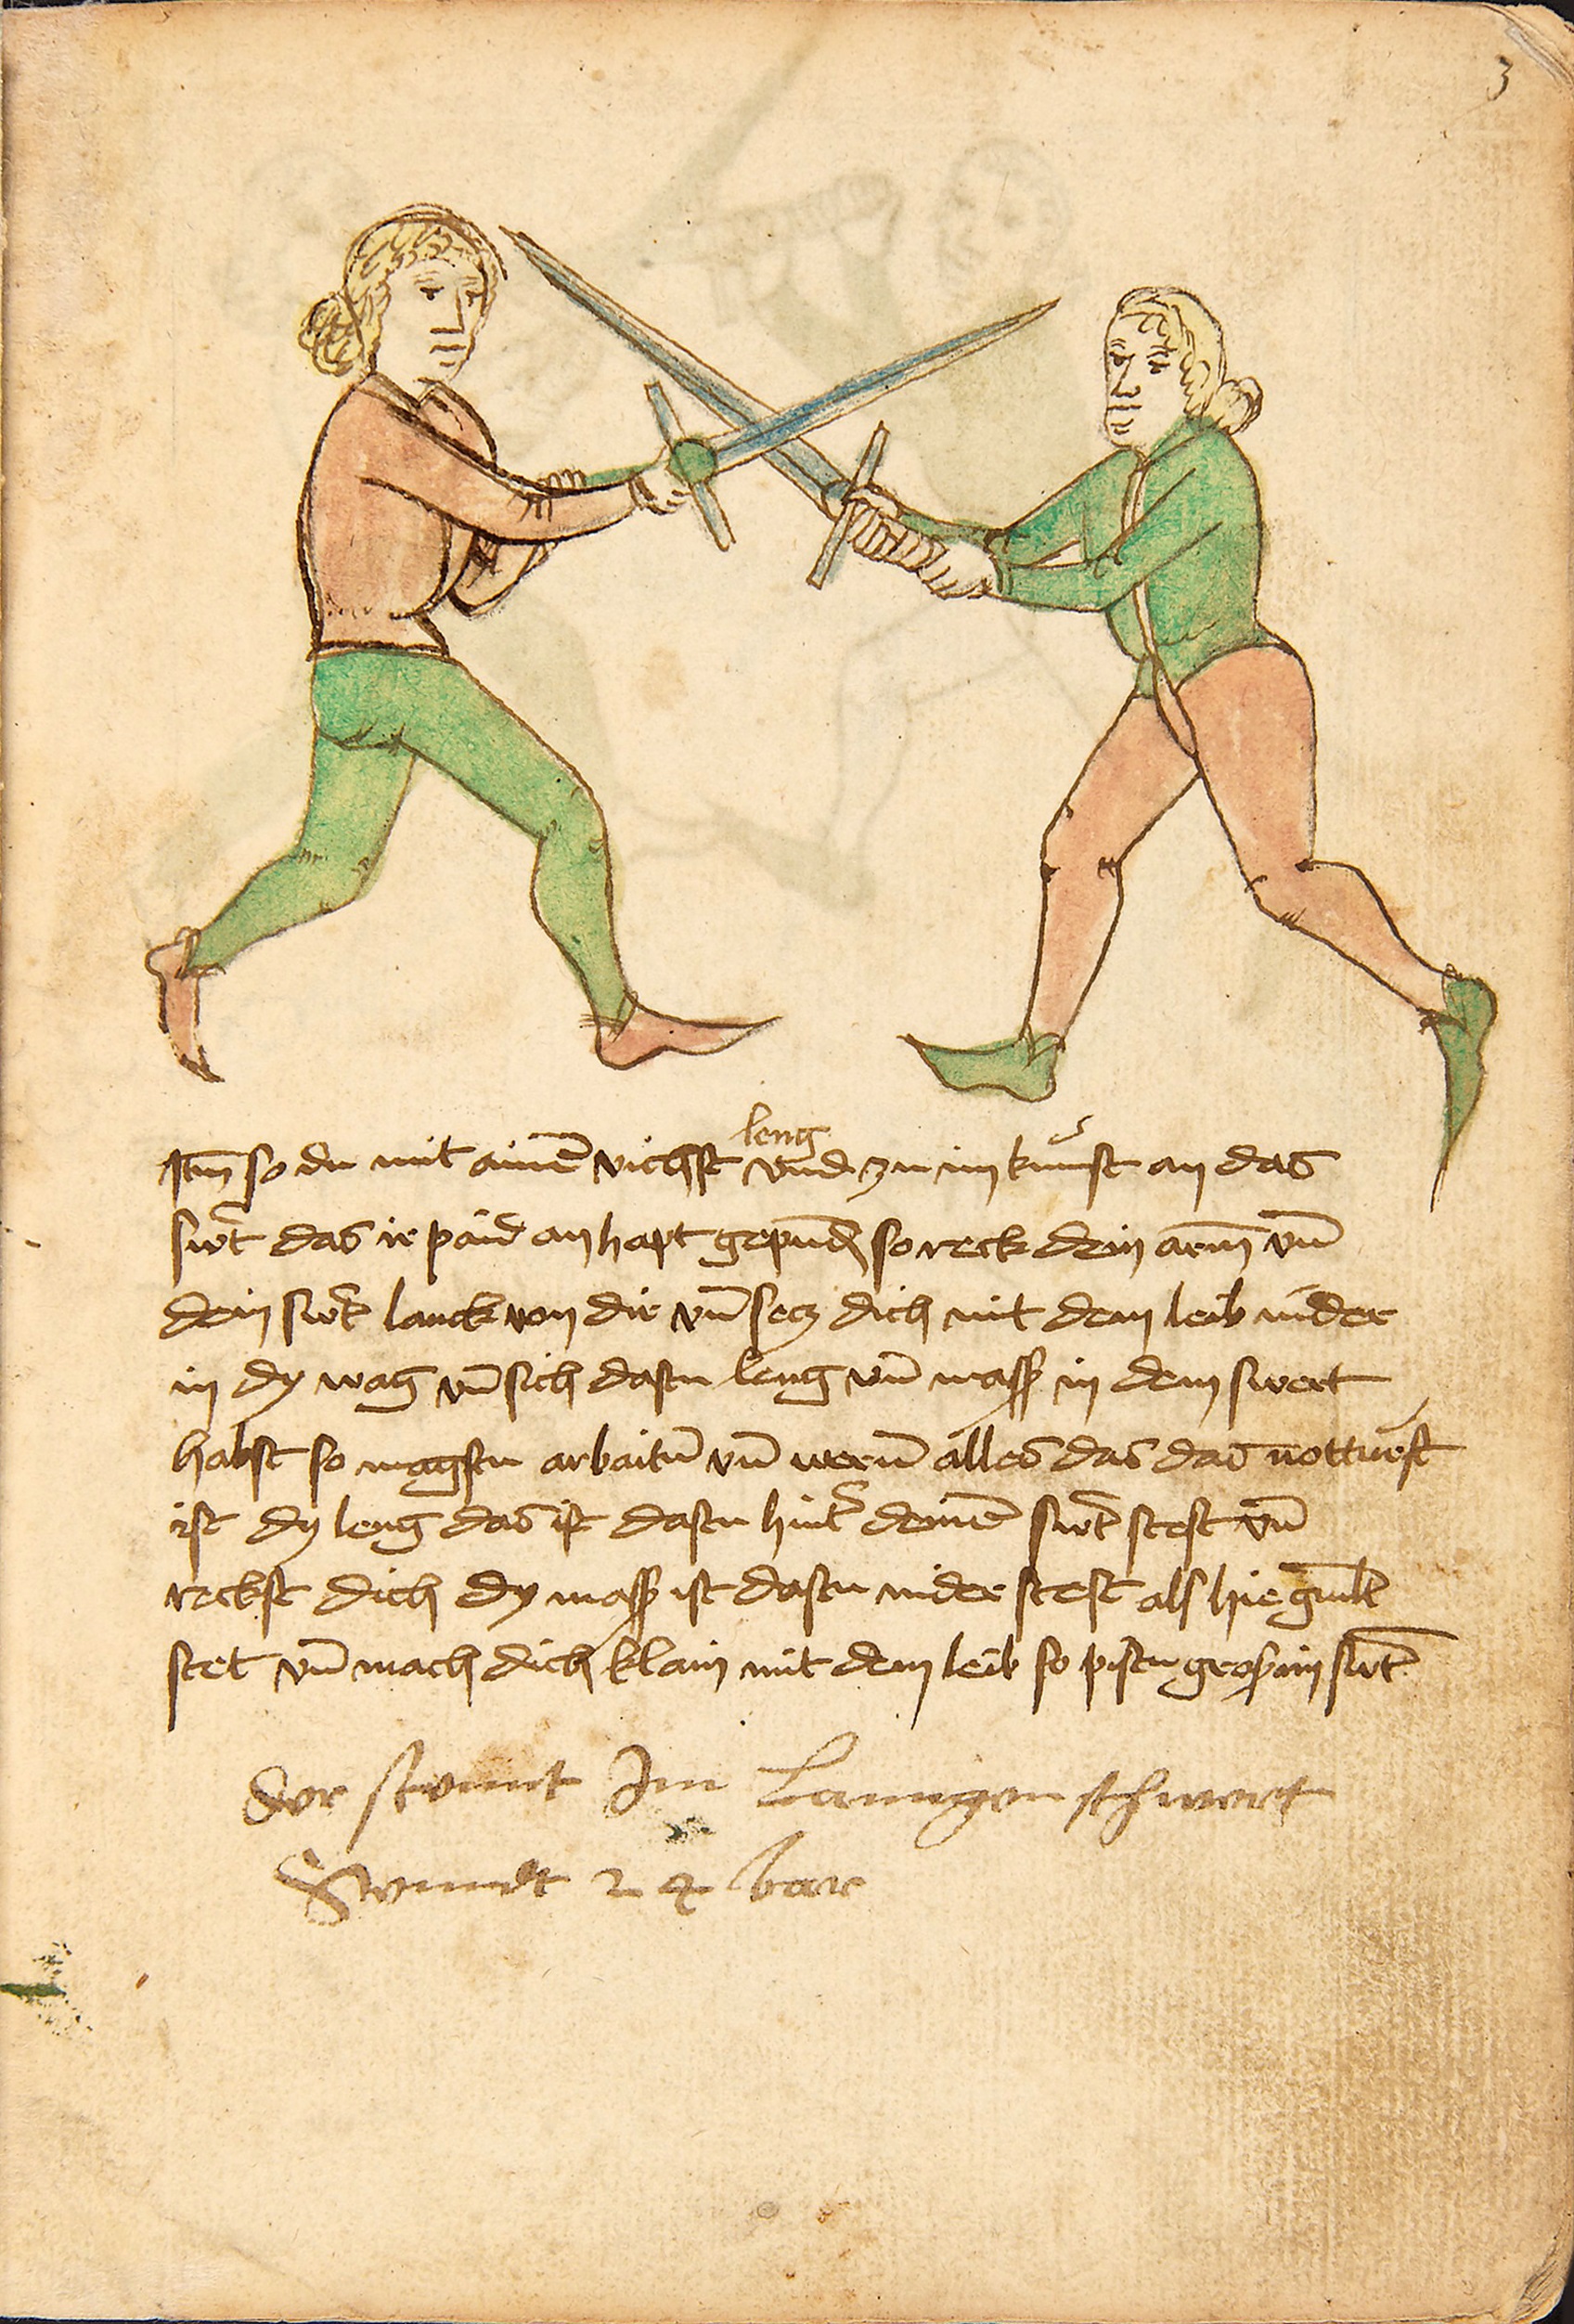 3
leng
Itm so du mit aine͂ vichst vnd zu im kumst an das
swt das ir paid an hapt gepund so reck dein arm vn̄
dein swt lanck von dir vn̄ secz dich mit dem leib nider
in dy wag vn̄ sich dastu leng vn̄ mass in dem swert
habst so magstu arbaitn̄ vn̄ wern̄ alles das das notturft
ist dy leng das ist dastu hint deine͂ swt stest vn̄
reckst dich dy mass ist dastu nider stest als hie gmlt
stet vn̄ mach dich klain mit dem leib so pistu gros im swt
der Im Lanngen schwert
24